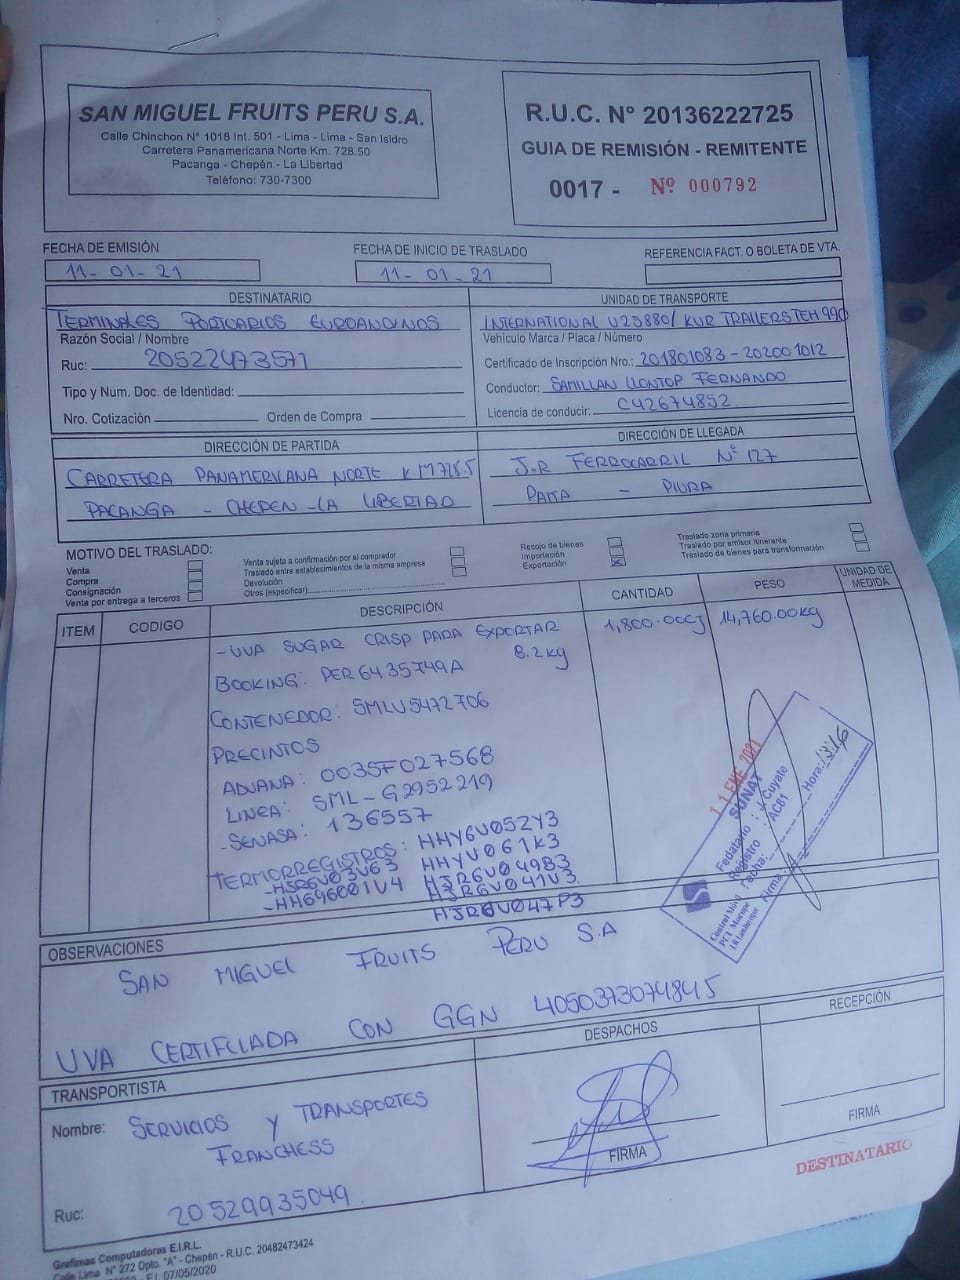 SAN MIGUEL FRUITS PERU S.A.
Calle Chinchon N° 1018 Int. 501 - Lima - Lima - San Isidro
Carretera Panamericana Norte Km. 728.50
Pacanga - Chepén - La Libertad
Teléfono: 730-7300
R.U.C. N° 20136222725
GUIA DE REMISIÓN - REMITENTE
0017 - Nº 000792
FECHA DE EMISIÓN
11-01-21
FECHA DE INICIO DE TRASLADO
11-01-21
REFERENCIA FACT. O BOLETA DE VTA.
DESTINATARIO
TERMINALES PORTUARIOS EUROANDINOS
Razón Social / Nombre
Ruc: 20522473571
Tipo y Num. Doc. de Identidad:
Nro. Cotización Orden de Compra
UNIDAD DE TRANSPORTE
INTERNATIONAL U25880/ KUR TRAILERS TEH 990
Vehículo Marca / Placa / Número
Certificado de Inscripción Nro.: 201801083-202001012
Conductor: SAMILLAN LLONTOP FERNANDO
Licencia de conducir: C42674852
DIRECCIÓN DE PARTIDA
CARRETERA PANAMERICANA NORTE KM 728.5
PACANGA - CHEPEN - LA LIBERTAD
DIRECCIÓN DE LLEGADA
J.R FERROCARRIL Nº 127
PAITA - PIURA
MOTIVO DEL TRASLADO:
Venta
Compra
Consignación
Venta por entrega a terceros
Venta sujeta a confirmación por el comprador
Traslado entre establecimientos de la misma empresa
Devolución
Otros (especificar)
Recojo de bienes
Importación
Exportación X
Traslado zona primaria
Traslado por emisor itinerante
Traslado de bienes para transformación
ITEM CODIGO DESCRIPCIÓN CANTIDAD PESO UNIDAD DE MEDIDA
-UVA SUGAR CRISP PARA EXPORTAR 1,800.00CJ 14,760.00Kg
8.2 Kg
BOOKING: PER6435749A
CONTENEDOR: SMLU5472706
PRECINTOS
ADUANA: 0035F027568
LINEA: SML-G2952219
-SENASA: 136557
TERMORREGISTROS: HHY6V052Y3
-HJR6V03V63 HHYV061K3
-HH696001V4 HJR6V049B3
HJR6V041V3
HJR6V047P3
11 ENE 2021
SUNAT
Fedatario: J. Cuyate
Registro: AC81
Fecha: Hora: 1316
Firma:
Control Móvil
PCI. Mocupe
I.R Lambayeque
OBSERVACIONES
SAN MIGUEL FRUITS PERU S.A
UVA CERTIFICADA CON GGN 4050373074845
TRANSPORTISTA
Nombre: SERVICIOS Y TRANSPORTES
FRANCHESS
Ruc: 20529935049
DESPACHOS
FIRMA
RECEPCIÓN
FIRMA
DESTINATARIO
Grafimas Computadoras E.I.R.L.
Calle Lima N° 272 Dpto. "A" - Chepén - R.U.C. 20482473424
F.I. 07/05/2020